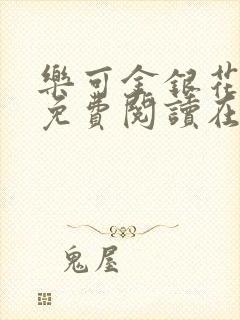 樂可金銀花
免費閱讀在
鬼屋